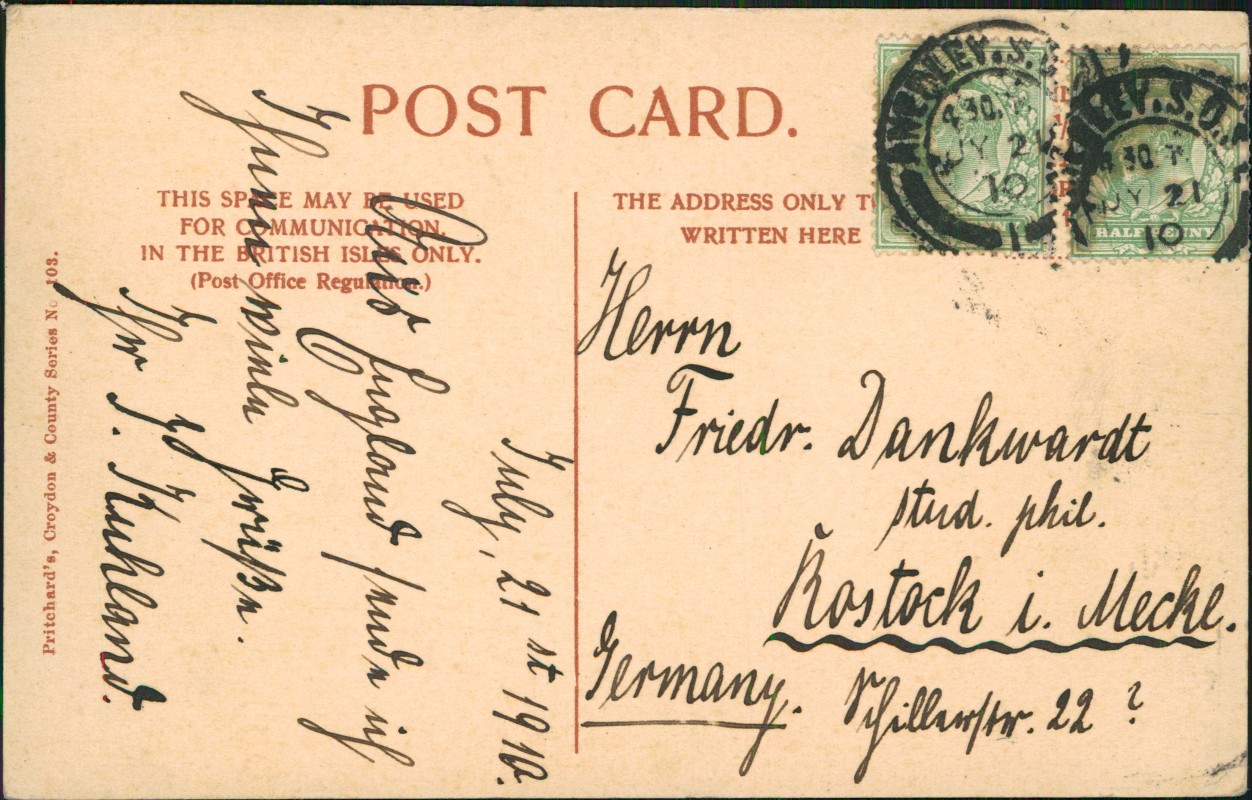 POST CARD.
THIS SPACE MAY BE USED
FOR COMMUNICATION.
IN THE BRITISH ISLES ONLY.
(Post Office Regulation.)
THE ADDRESS ONLY T
WRITTEN HERE
Pritchard's, Croydon & County Series No 103.
ANERLEY.S.O.
JY 21
10
ERLEY.S.O.
30
JY 21
10
HALFPENNY
July, 21 st 1910.
Aus England sende ich
Ihnen viele Grüße.
Ihr J. Kuhland.
Herrn
Friedr. Dankwardt
stud. phil.
Rostock i. Meckl.
Germany. Schillerstr. 22 ?